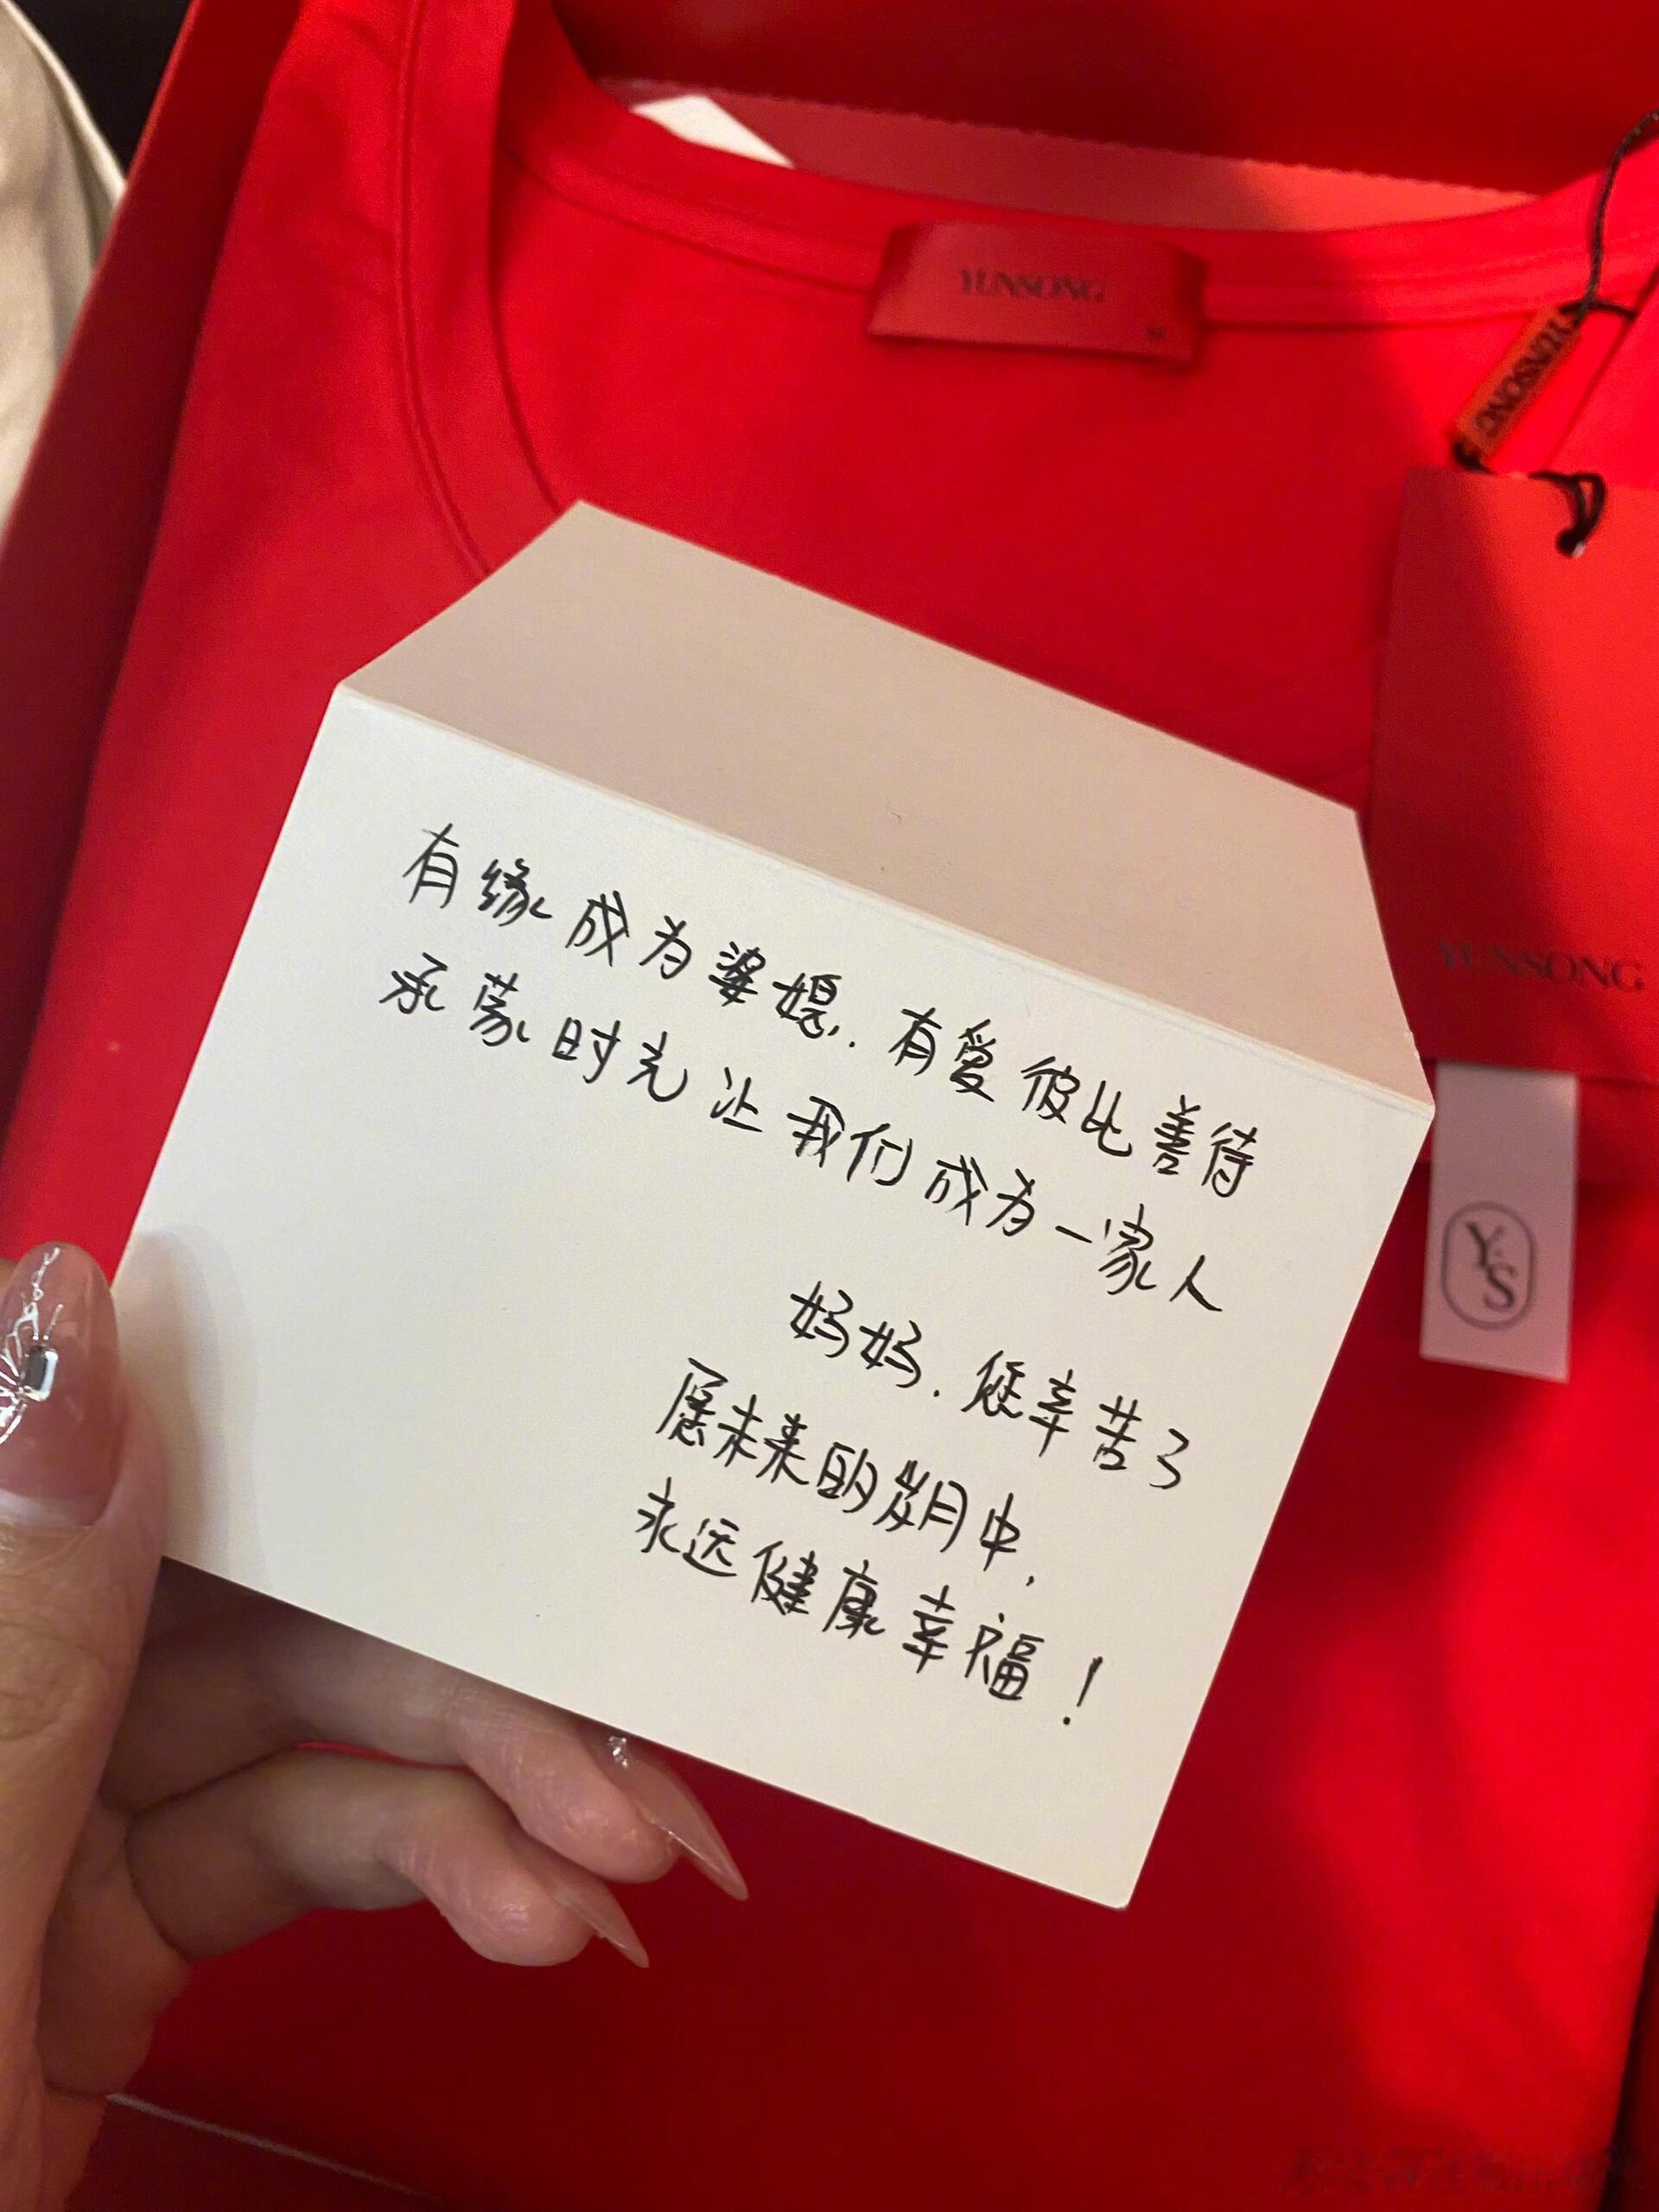 YUNSONG
M
YUNSONG
YUNSONG
YS
有缘成为婆媳.有爱彼比善待
承蒙时光让我们成为一家人
妈妈.您辛苦了
愿未来的岁月中,
永远健康幸福!